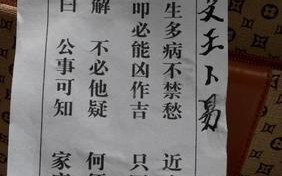 文王卜易
生多病不禁愁 近
叩必能凶作吉 只
解 不必他疑 何
曰 公事可知 家